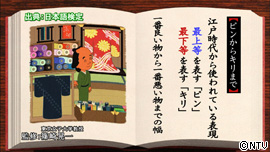 【ピンからキリまで】
江戸時代から使われている表現
最上等を表す「ピン」
最下等を表す「キリ」
一番良い物から一番悪い物までの幅
出典:日本語検定
©NTV